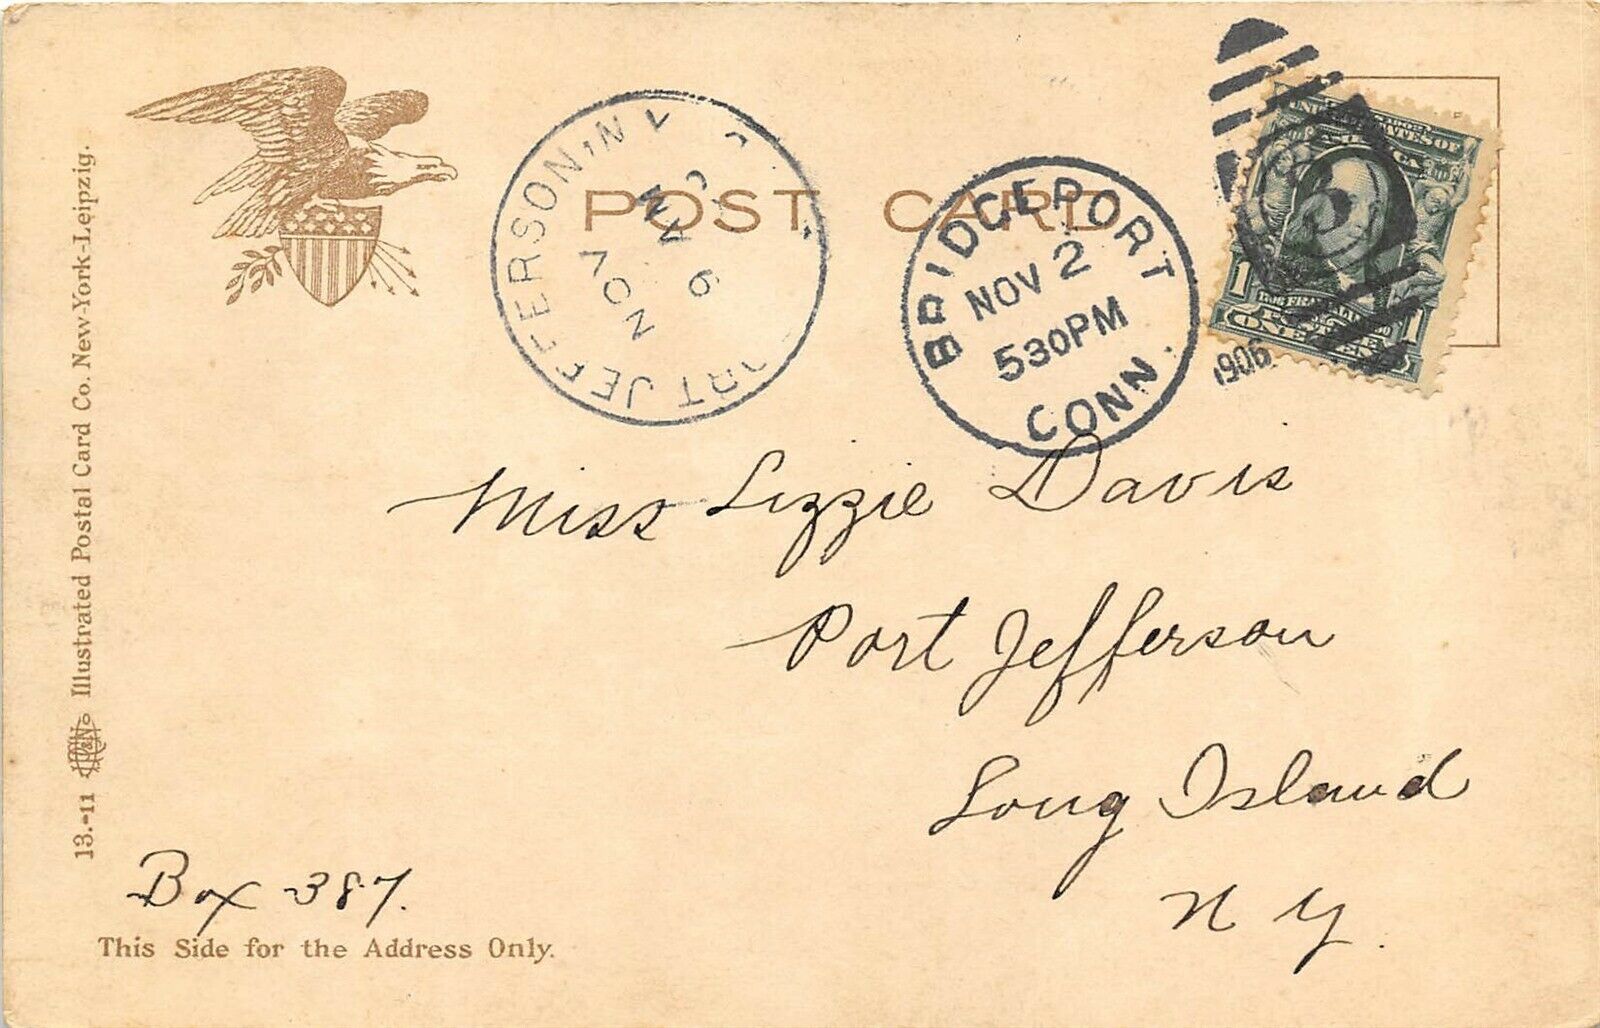 POST CARD
PORT JEFFERSON, N
NOV
AM
6
BRIDGEPORT
NOV 2
530PM
CONN.
1906
UNITED STATES OF
AMERICA
1 1
ONE CENT
Miss Lizzie Davis
Port Jefferson
Long Island
N Y.
Box 387.
This Side for the Address Only.
13.-11 Illustrated Postal Card Co. New-York-Leipzig.